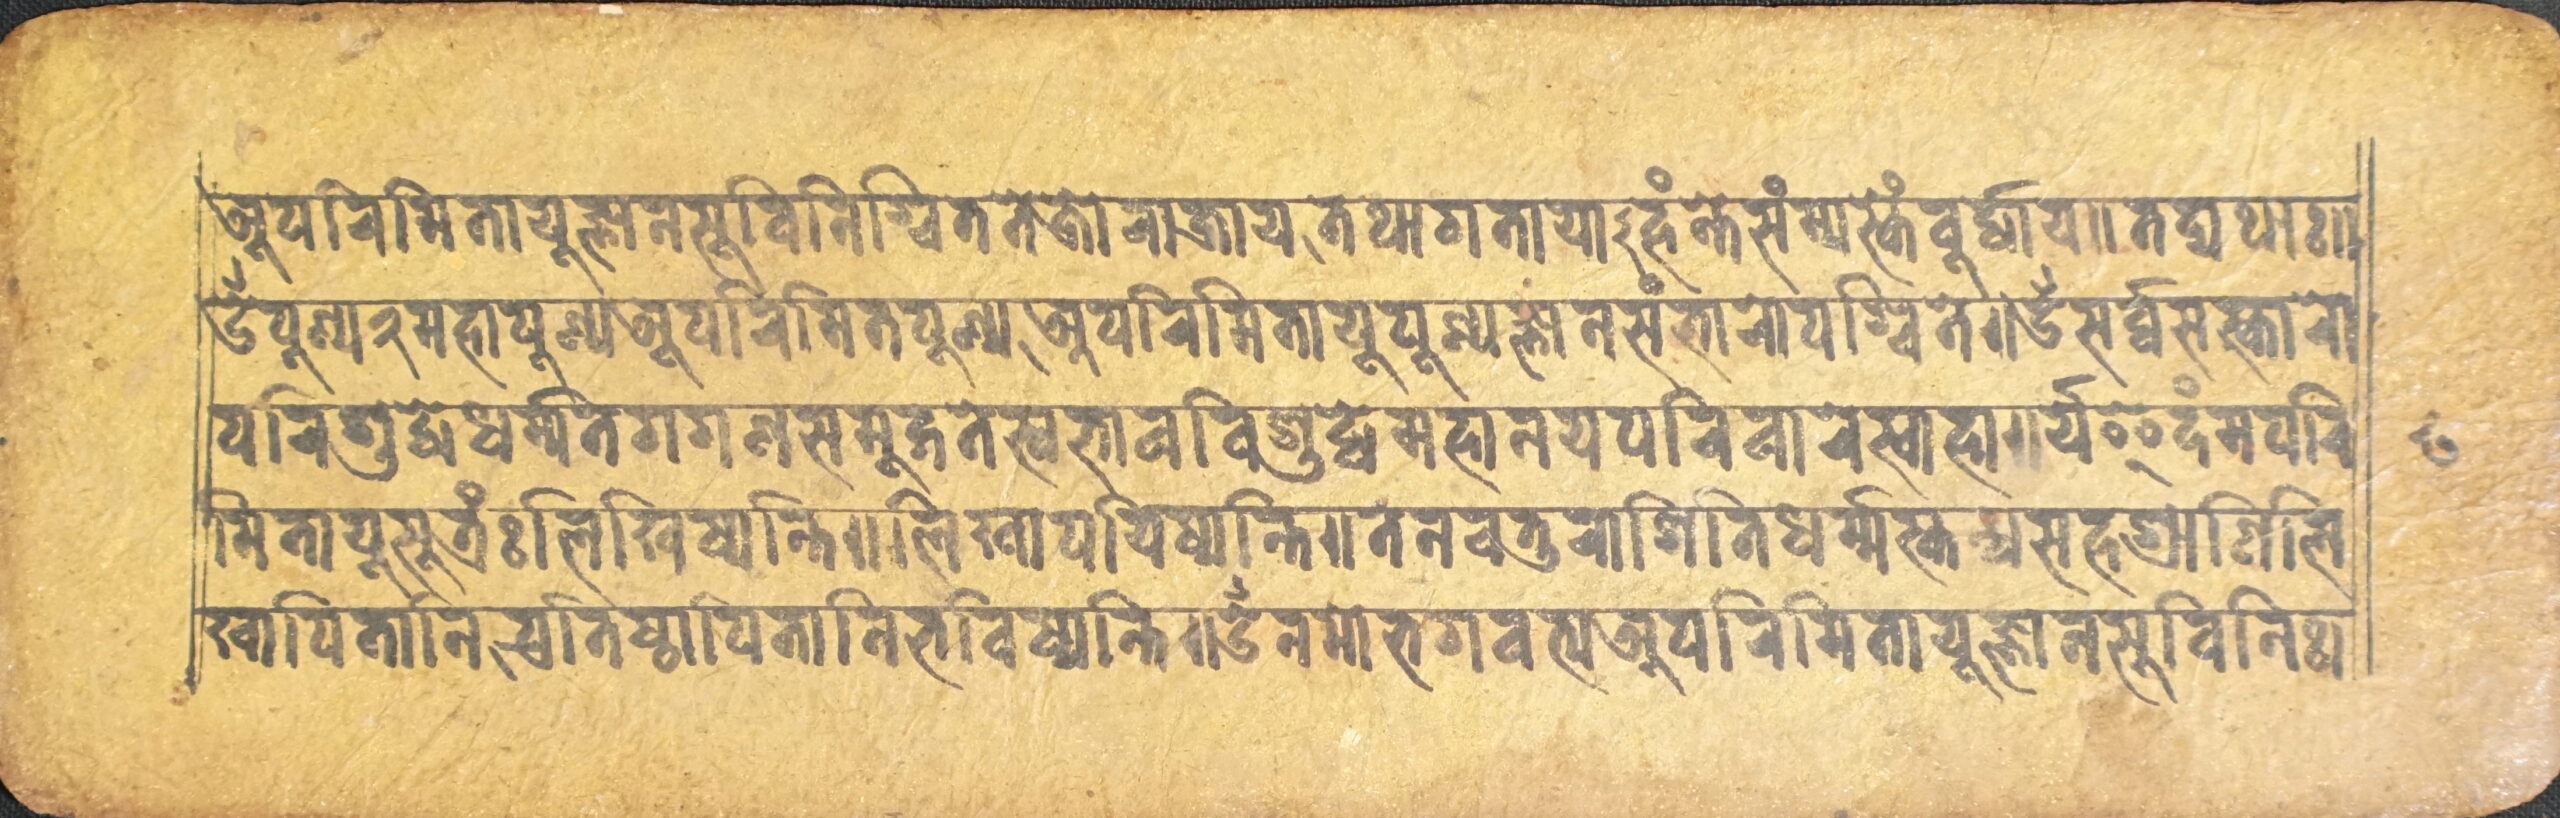 अपरिमितायूज्ञानसूविनिश्चिततेजोराजाय तथागतायाऽर्हंन्तेसंम्यस्कंबुर्द्धाय॥तद्यथाः॥
ॐपूण्य२महापूण्यअपरिमितपूण्य अपरिमितायूपूण्यज्ञानसंभारोपश्चिते॥ॐसर्व्वसस्कारो
परिशुद्धेधर्म्मतेगगणसमूद्गतेस्वभावविशुद्धेमहानयपरिवारेस्वाहा॥र्यदंमपरि
मितायूसूत्रंःलिखिष्यन्ति॥लिखापयिष्यन्ति॥तेनचतुराशितिधर्म्मस्कन्धसहश्राणिलि
खापितानि प्रतिष्ठापितानिभविष्यन्ति॥ॐनमोभगवत्यअपरिमितायूज्ञानसुविनिश्चि